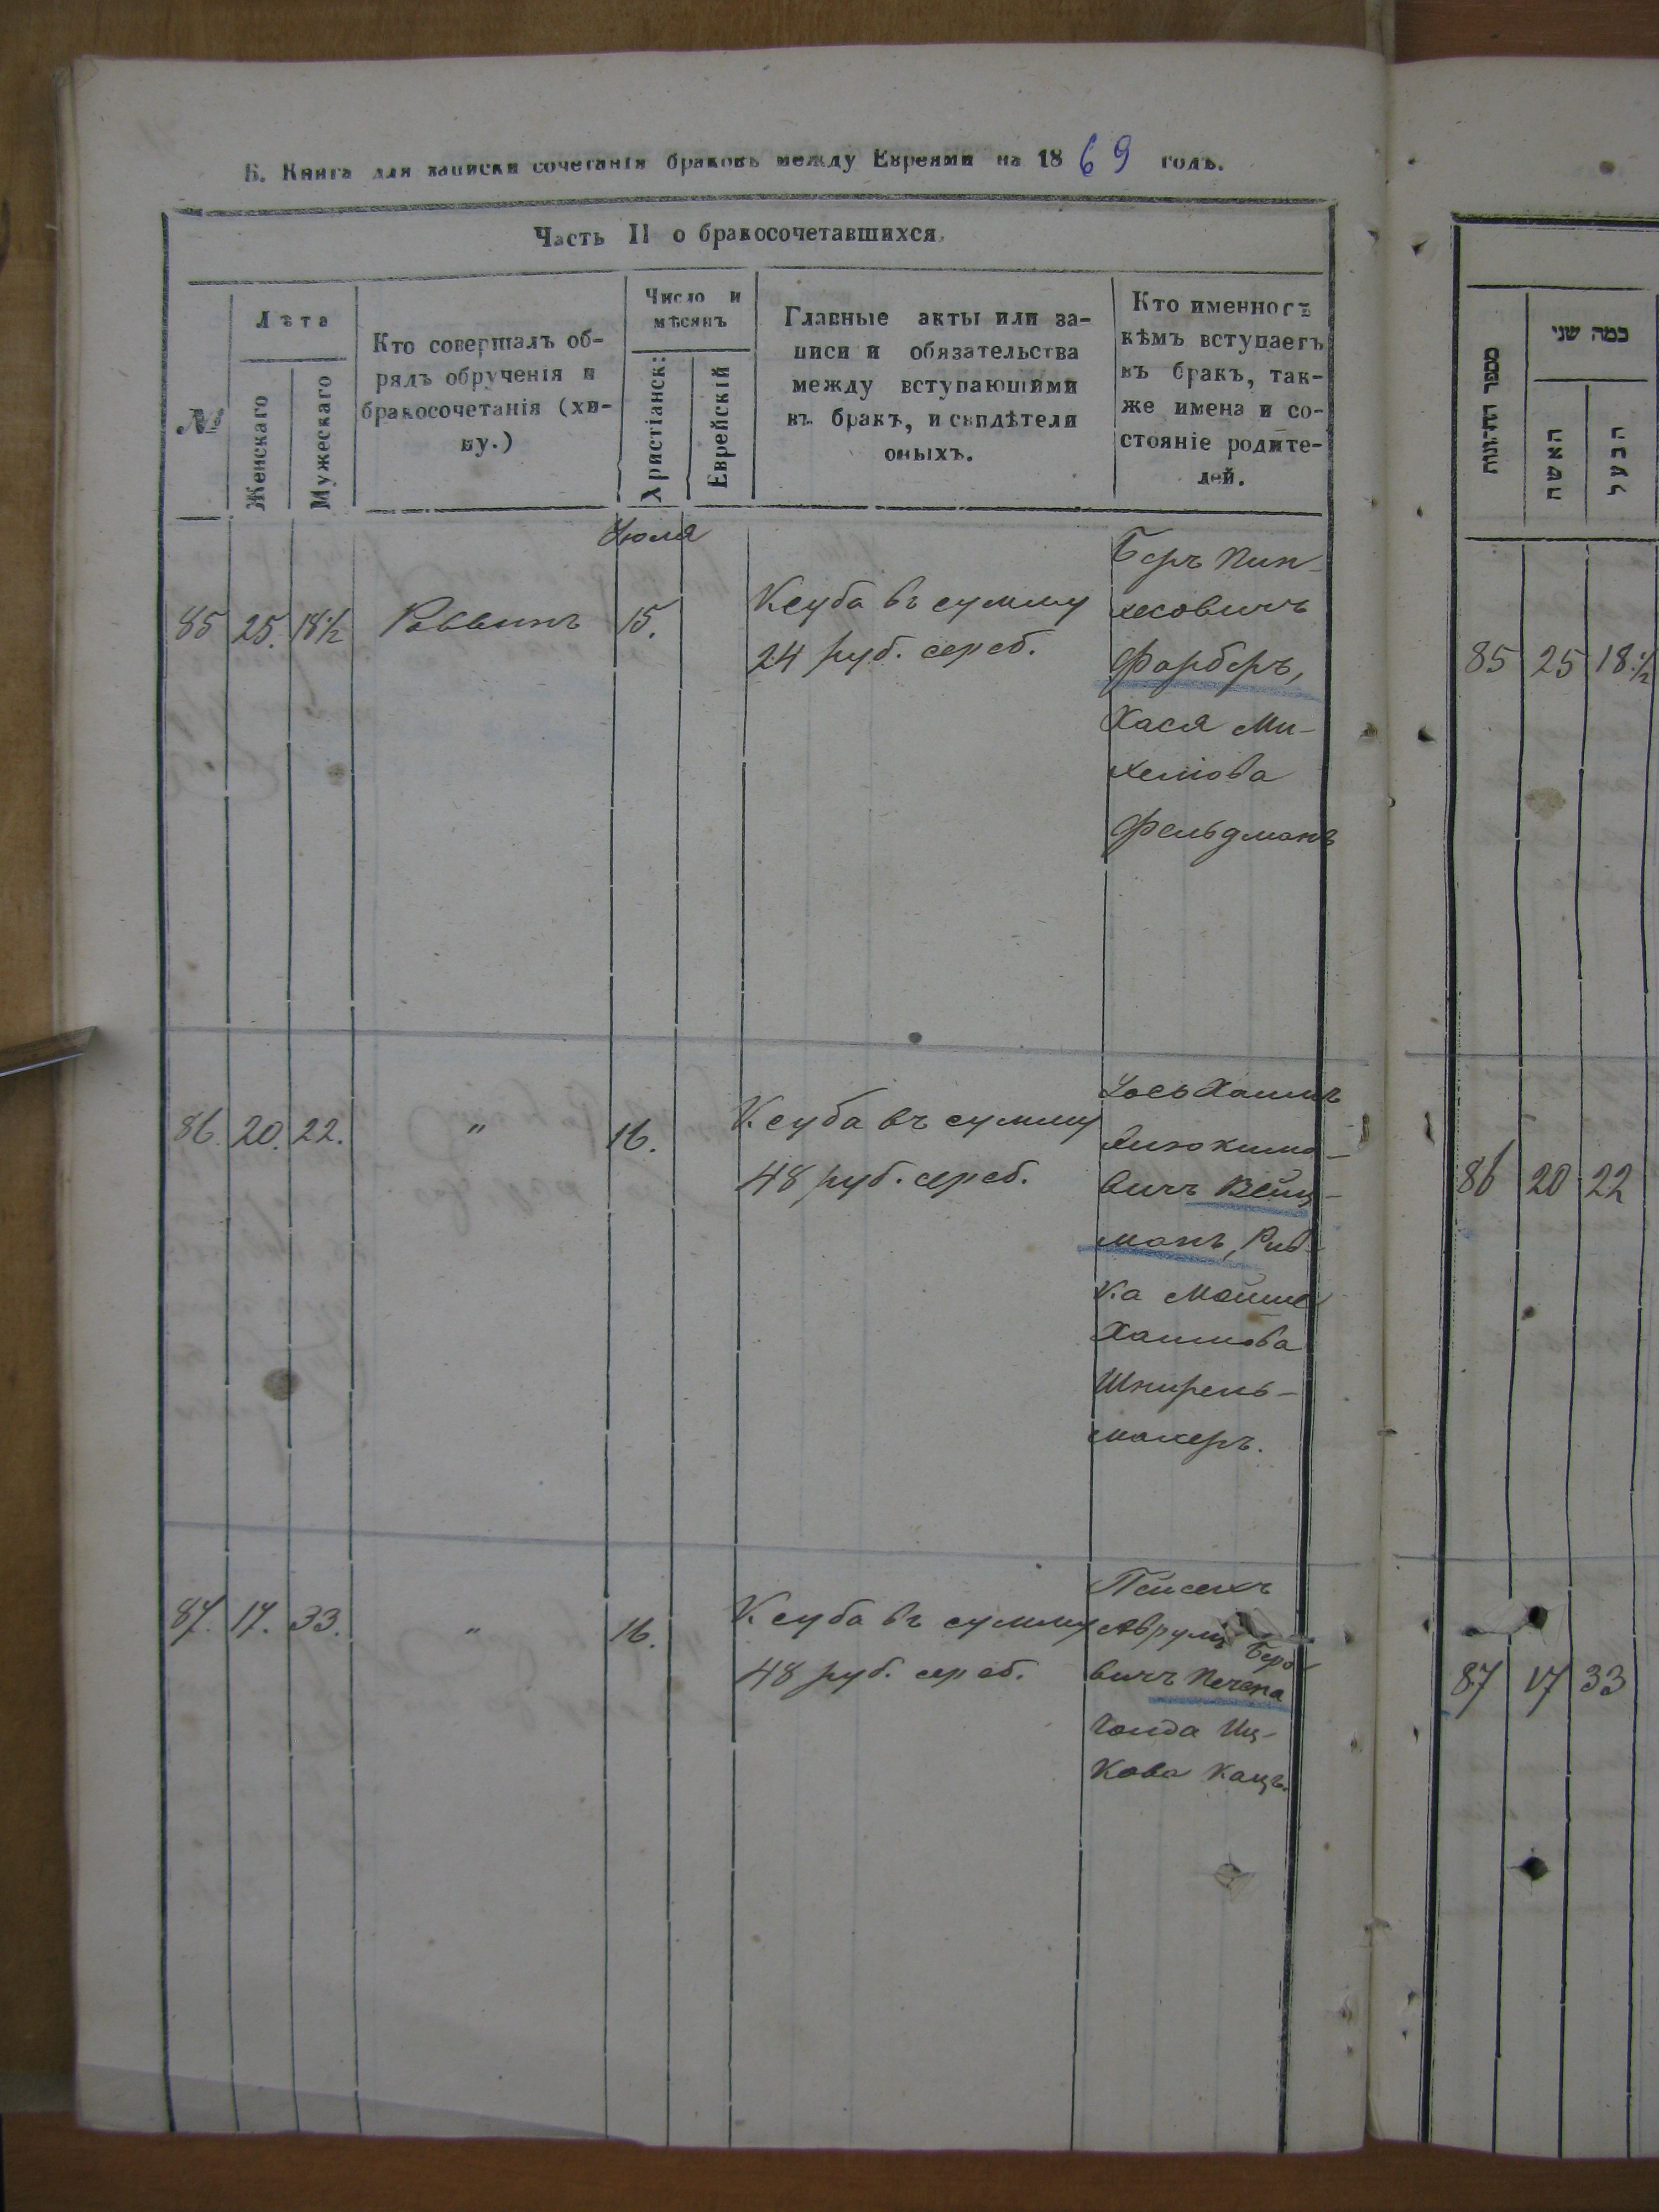 Б. Книга для записки сочетанія браковъ между Евреями на 1869 годъ.
Часть II о бракосочетавшихся.
№
Лѣта
Женскаго
Мужескаго
Кто совершалъ об-
рядъ обрученія и
бракосочетанія (хи-
ну.)
Число и
мѣсяцъ
Христіанск:
Еврейскій
Главные акты или за-
писи и обязательства
между вступающими
въ бракъ, и свидѣтели
оныхъ.
Кто именно съ
кѣмъ вступаетъ
въ бракъ, так-
же имена и со-
стояніе родите-
лей.
Іюля
85 25. 18½ Раввинъ 15.
Ксуба въ сумму
24 руб. сереб.
Беръ Пин-
хесовичъ
Фарберъ,
Хася Ми-
хелiова
Фельдманъ
86. 20. 22. " 16.
Ксуба въ сумму
48 руб. сереб.
Іось Хаимъ
вичъ Вейц-
манъ, Рив-
ка Мойше
Хаимова
Шпирель-
махеръ.
87. 17. 33. " 16.
Ксуба въ сумму
48 руб. сереб.
Пейсехъ
Аврумъ Беро-
вичъ Печера
Голда Иц-
кова Кацъ.
מספר החתונות
כמה שני
האשה
הבעל
85 25 18½
86 20 22
87 17 33